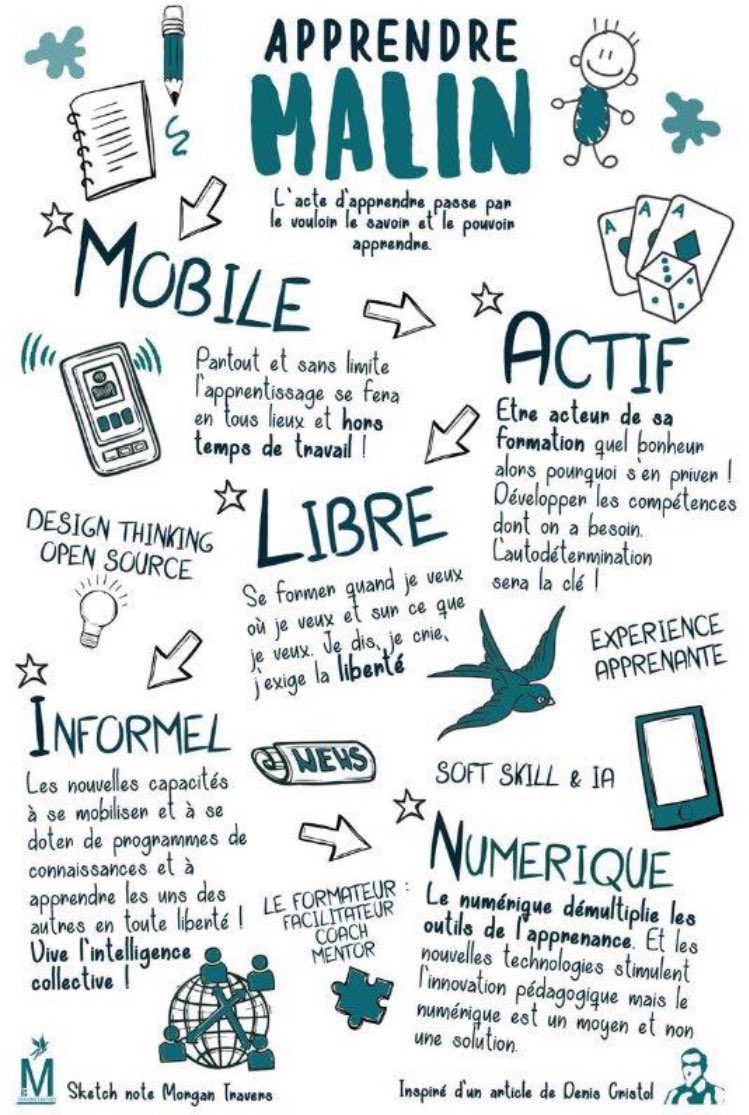 APPRENDRE
MALIN
L'acte d'apprendre passe par
le vouloir le savoir et le pouvoir
apprendre.
MOBILE
Partout et sans limite
l'apprentissage se fera
en tous lieux et hors
temps de travail !
A A A
ACTIF
Etre acteur de sa
formation quel bonheur
alors pourquoi s'en priver !
Développer les compétences
dont on a besoin.
L'autodétermination
sera la clé !
DESIGN THINKING
OPEN SOURCE
LIBRE
Se former quand je veux
où je veux et sur ce que
je veux. Je dis, je crie,
j'exige la liberté
EXPERIENCE
APPRENANTE
INFORMEL
Les nouvelles capacités
à se mobiliser et à se
doter de programmes de
connaissances et à
apprendre les uns des
autres en toute liberté !
Vive l'intelligence
collective !
NEWS
SOFT SKILL & IA
LE FORMATEUR :
FACILITATEUR
COACH
MENTOR
NUMERIQUE
Le numérique démultiplie les
outils de l'apprenance. Et les
nouvelles technologies stimulent
l'innovation pédagogique mais le
numérique est un moyen et non
une solution.
M
Sketch note Morgan Travers
Inspiré d'un article de Denis Cristol